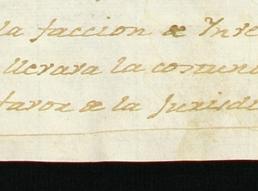 la faccion de Inre
llevara la comun
tavor de la Jurisdi